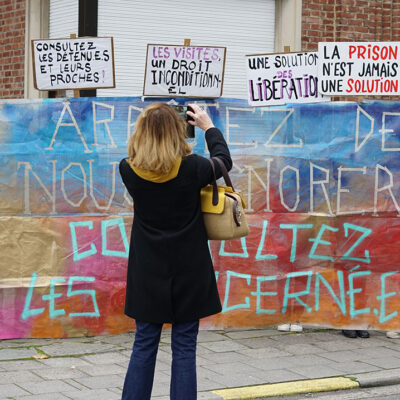 CONSULTEZ
LES DÉTENU.E.S
ET LEURS
PROCHES !
LES VISITES,
UN DROIT
INCONDITIONN-
EL
UNE SOLUTION
DES
LIBÉRATION
LA PRISON
N'EST JAMAIS
UNE SOLUTION
ARR EZ DE
NOU IGNORER
CO U LTEZ
LES CERNÉ.E